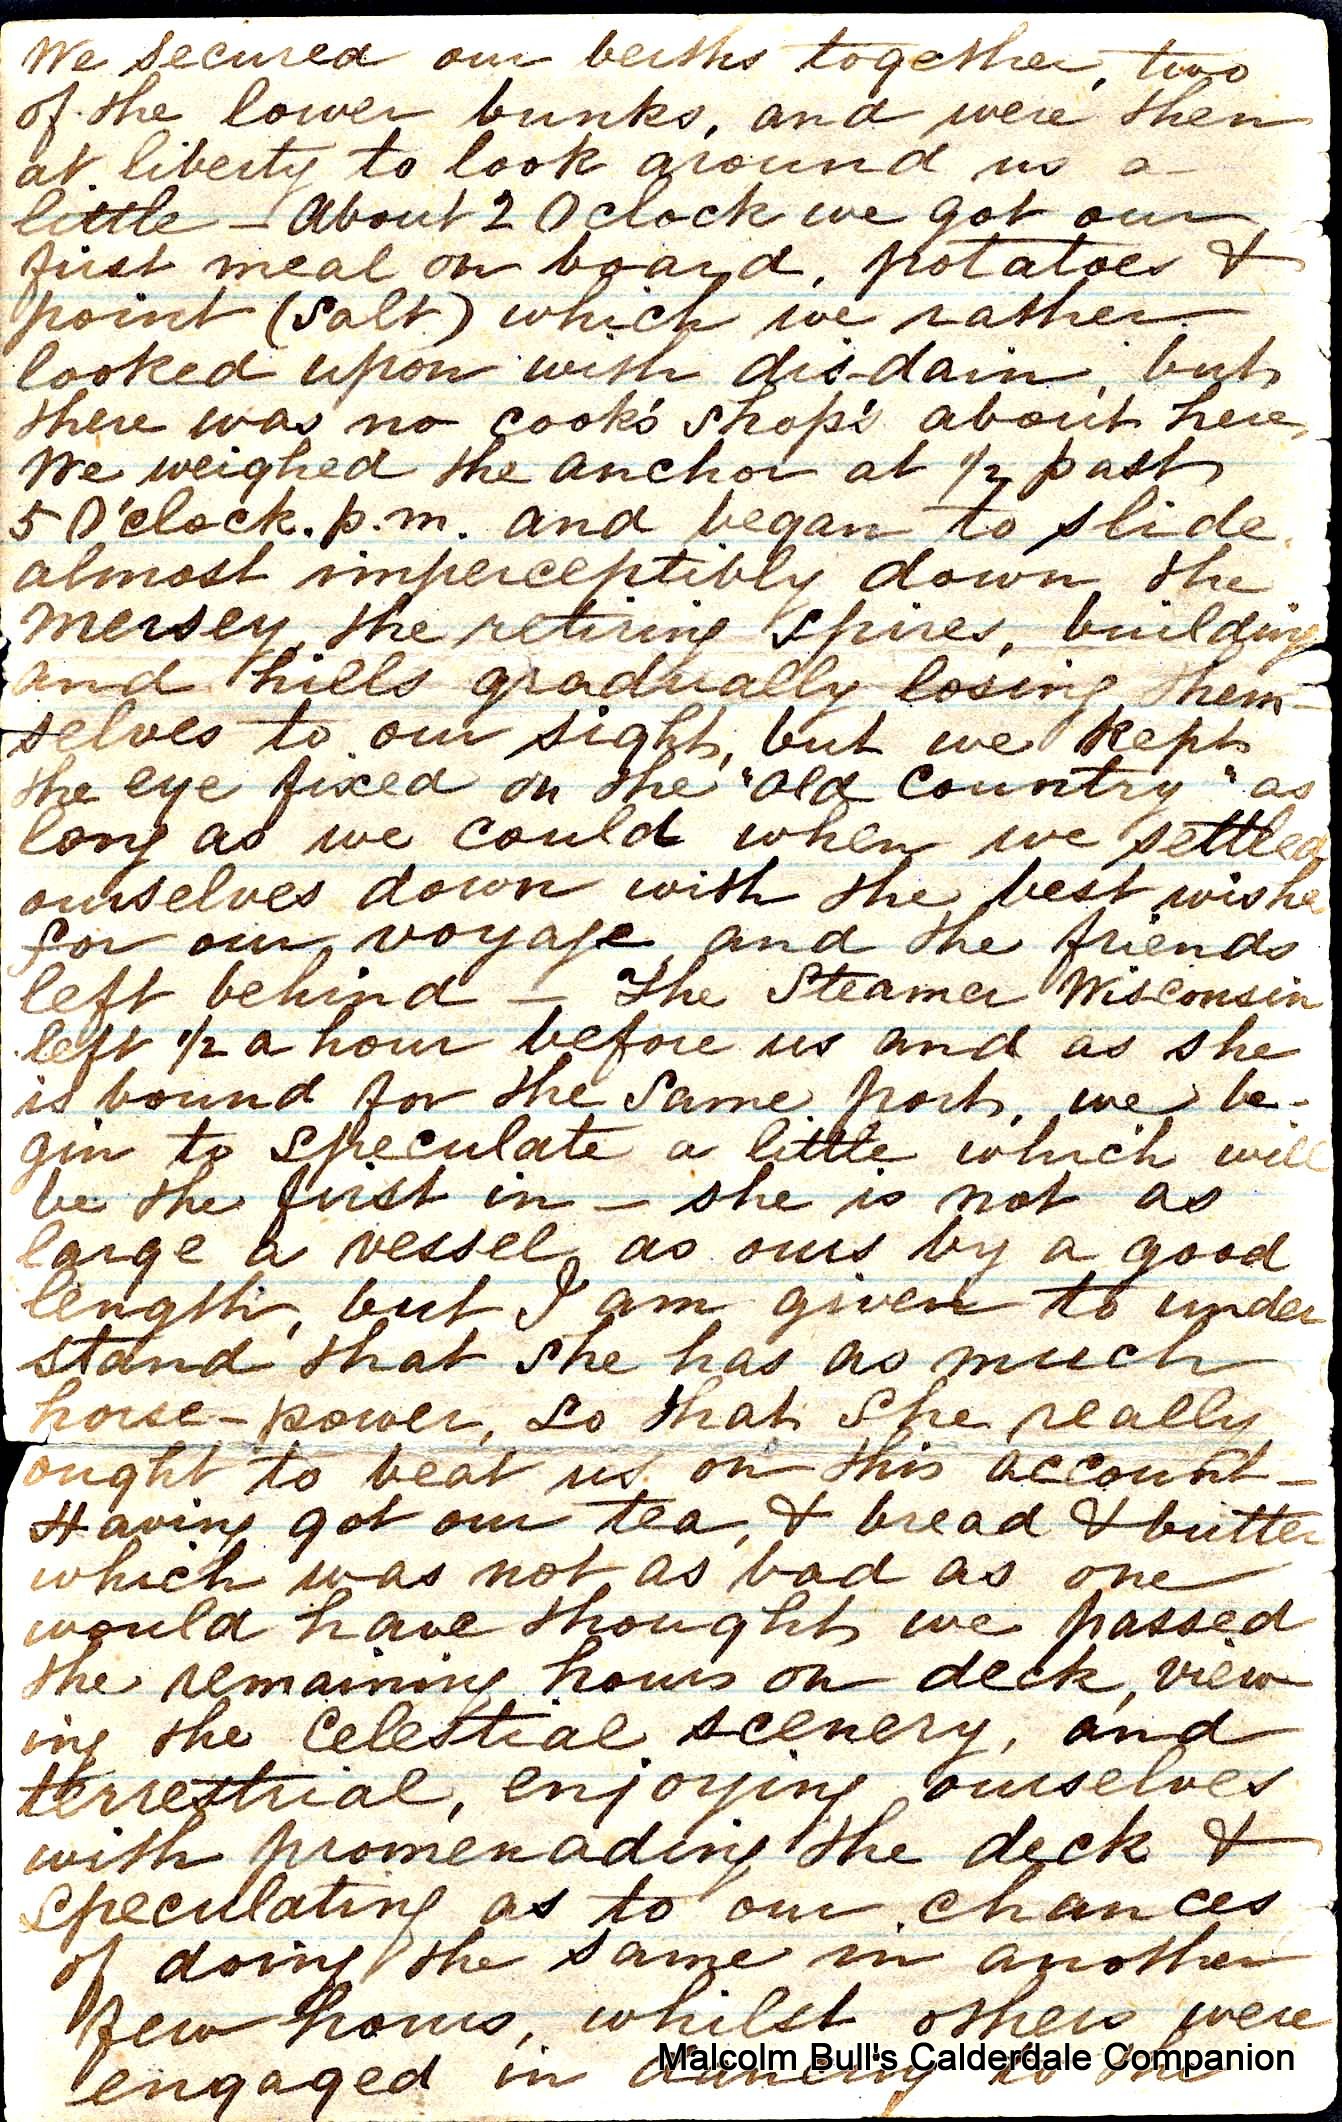 We secured our berths together, two
of the lower bunks, and were then
at liberty to look around us a
little - About 2 O clock we got our
first meal on board, potatoes &
point (Salt) which we rather
looked upon with dis-dain, but
there was no cook's shop's about here,
We weighed the anchor at 1/2 past
5 O'clock. p.m. and began to slide
almost imperceptibly down the
Mersey, the retiring spires, building
and hills gradually losing them-
selves to our sight, but we kept
the eye fixed on the "Old Country" as
long as we could when we settled
ourselves down with the best wishe
for our voyage and the friends
left behind - The Steamer Wisconsin
left 1/2 a hour before us and as she
is bound for the same port, we be-
gin to speculate a little which will
be the first in - she is not as
large a vessel as ours by a good
length, but I am given to under
stand that she has as much
horse-power, so that she really
ought to beat us on this account -
Having got our tea, & bread & butter
which was not as bad as one
would have thought we passed
the remaining hours on deck, view
ing the celestial scenery, and
terrestrial, enjoying ourselves
with promenading the deck &
speculating as to our chances
of doing the same in another
few hours, whilst others were
engaged in dancing to the
Malcolm Bull's Calderdale Companion